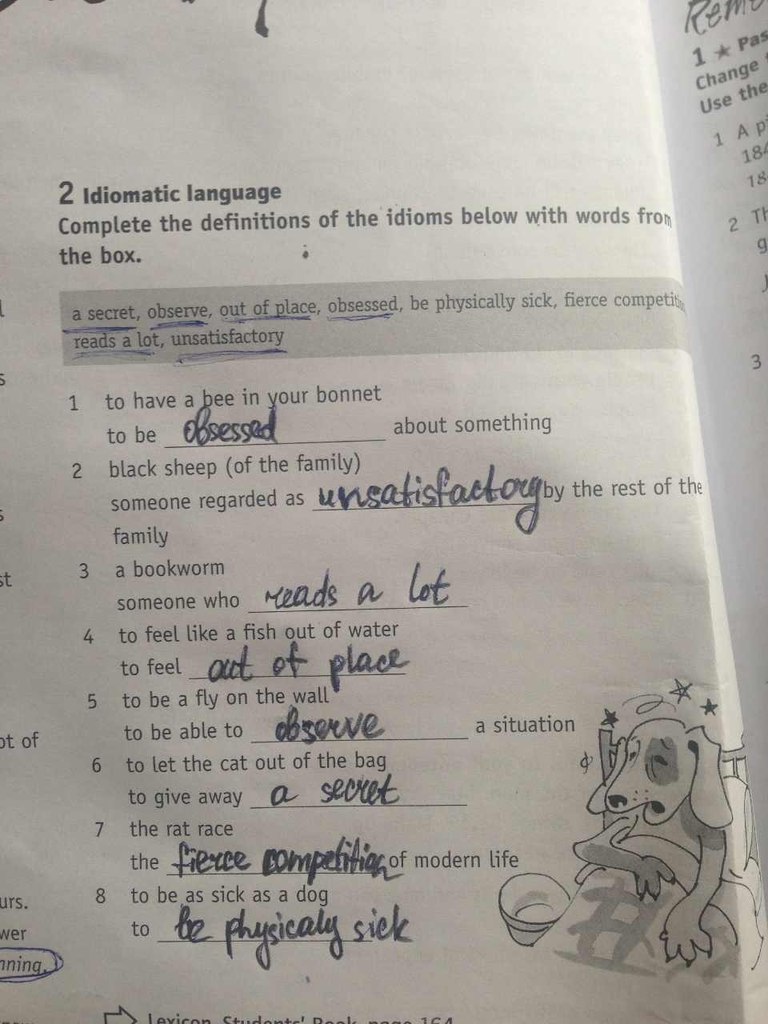 Rem
1 ★ Pas
Change
Use the
1 A pi
184
18
2 Th
g
J
3
2 Idiomatic language
Complete the definitions of the idioms below with words from
the box.
a secret, observe, out of place, obsessed, be physically sick, fierce competiti
reads a lot, unsatisfactory
1 to have a bee in your bonnet
to be obsessed about something
2 black sheep (of the family)
someone regarded as unsatisfactory by the rest of the
family
3 a bookworm
someone who reads a lot
4 to feel like a fish out of water
to feel out of place
5 to be a fly on the wall
to be able to observe a situation
6 to let the cat out of the bag
to give away a secret
7 the rat race
the fierce competition of modern life
8 to be as sick as a dog
to be physicaly sick
ot of
urs.
wer
nning.
Lexicon Students' Book page 164